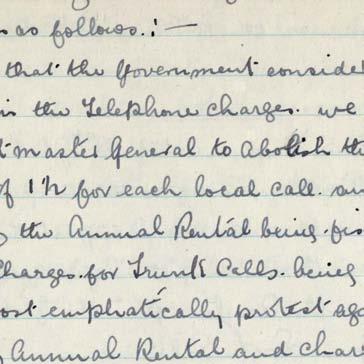 s as follows.: —
that the Government consider
in the Telephone charges. we
t master General to abolish th
of 1½ for each local call. an
the Annual Rental being fix
Charges for Trunk Calls. being
ost emphatically protest aga
Annual Rental and char